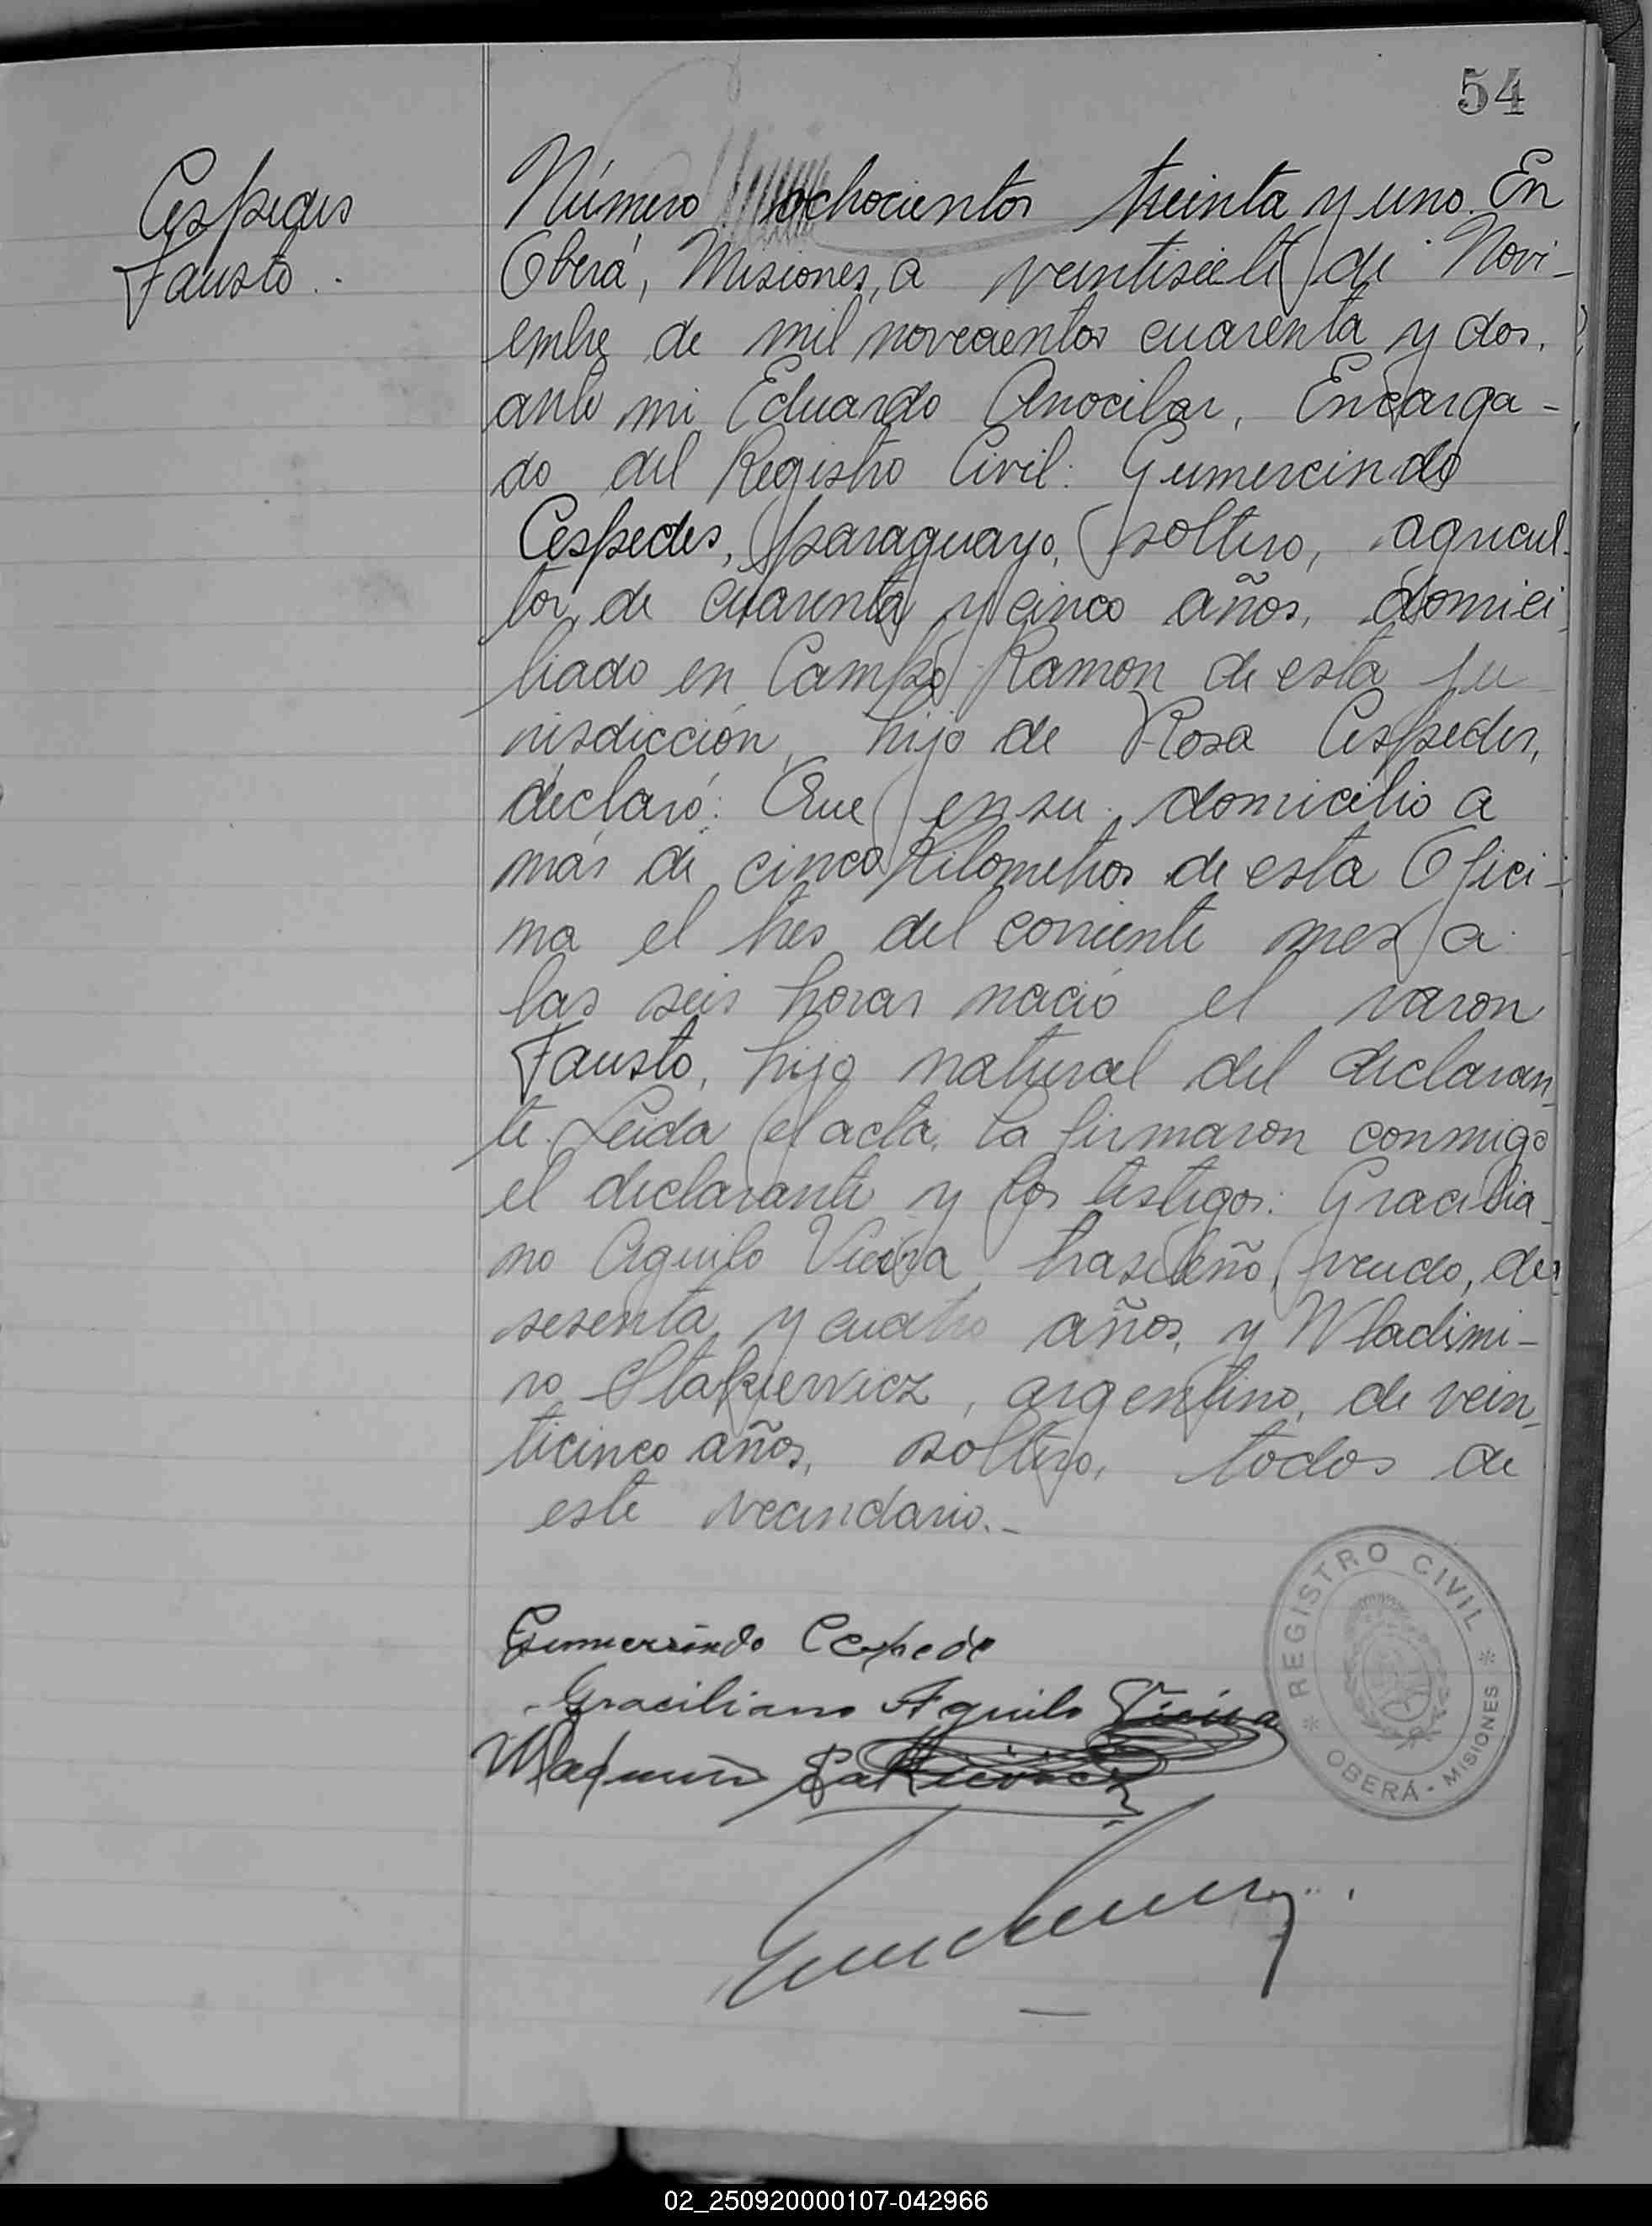 54
Cespedes
Fausto.
Número ochocientos treinta y uno. En
Oberá, Misiones, a veintisiete de Novi-
embre de mil novecientos cuarenta y dos,
ante mi Eduardo Anocibar, Encarga-
do del Registro Civil: Gumercindo
Cespedes, paraguayo, soltero, agricul-
tor, de cuarenta y cinco años, domici-
liado en Campo Ramon de esta ju
risdicción, hijo de Rosa Cespedes,
declaró: Que en su domicilio a
más de cinco Kilometros de esta Ofici-
na el tres del corriente mes a
las seis horas nació el varon
Fausto, hijo natural del declaran-
te. Leida el acta, la firmaron conmigo
el declarante y los testigos: Gracilia-
no Aguilo Vieira, brasileño, viudo, de
sesenta y cuatro años, y Wladimi-
ro Stakiewicz, argentino, de vein-
ticinco años, soltero, todos de
este vecindario.-
Gumercindo Cespede
Graciliano Aguilo Vieira
REGISTRO CIVIL
OBERÁ - MISIONES
02_250920000107-042966